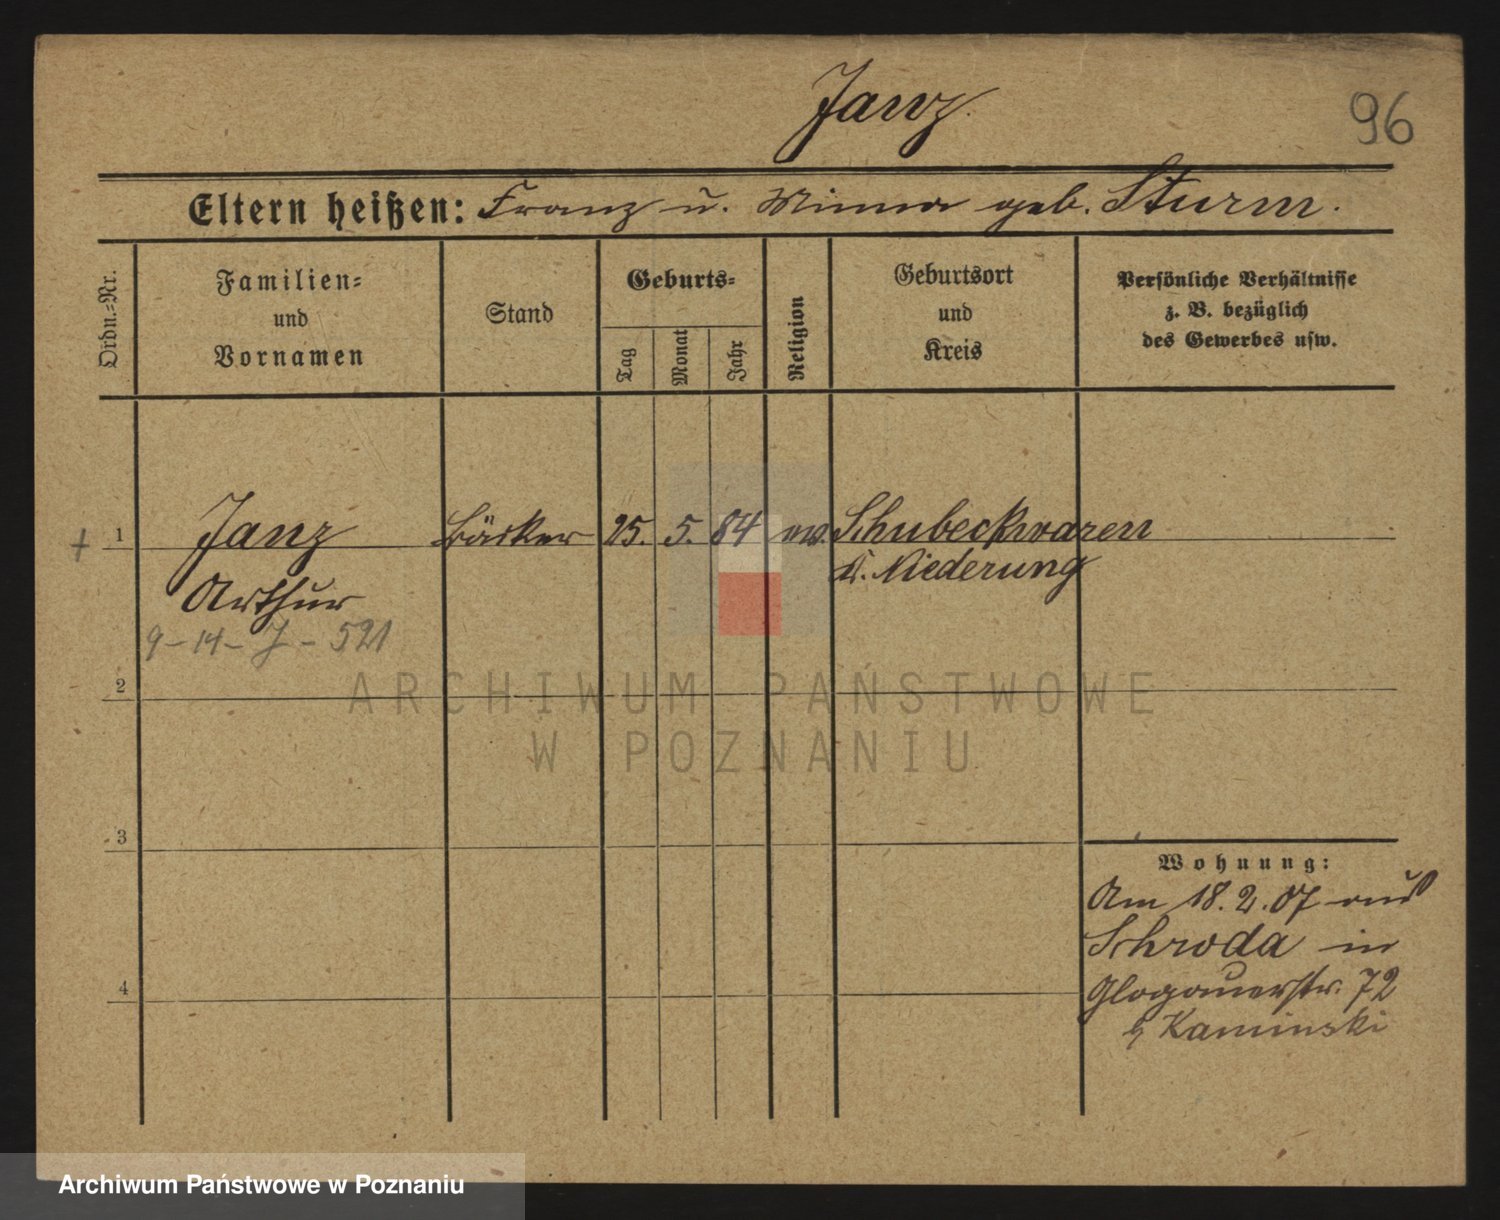 Janz.
96
Eltern heißen: Franz u. Minna geb. Sturm.
Ordn.-Nr.
Familien-
und
Vornamen
Stand
Geburts-
Tag
Monat
Jahr
Religion
Geburtsort
und
Kreis
Persönliche Verhältnisse
z. B. bezüglich
des Gewerbes usw.
+ 1 Janz Bäcker 25. 5. 84 ev. Schubeckwaren
Arthur K. Niederung
9-14-J-521
2
3
4
Wohnung:
Am 18.2.07 aus
Schroda in
Glogauerstr. 72
b/ Kaminski
ARCHIWUM PAŃSTWOWE
W POZNANIU
Archiwum Państwowe w Poznaniu